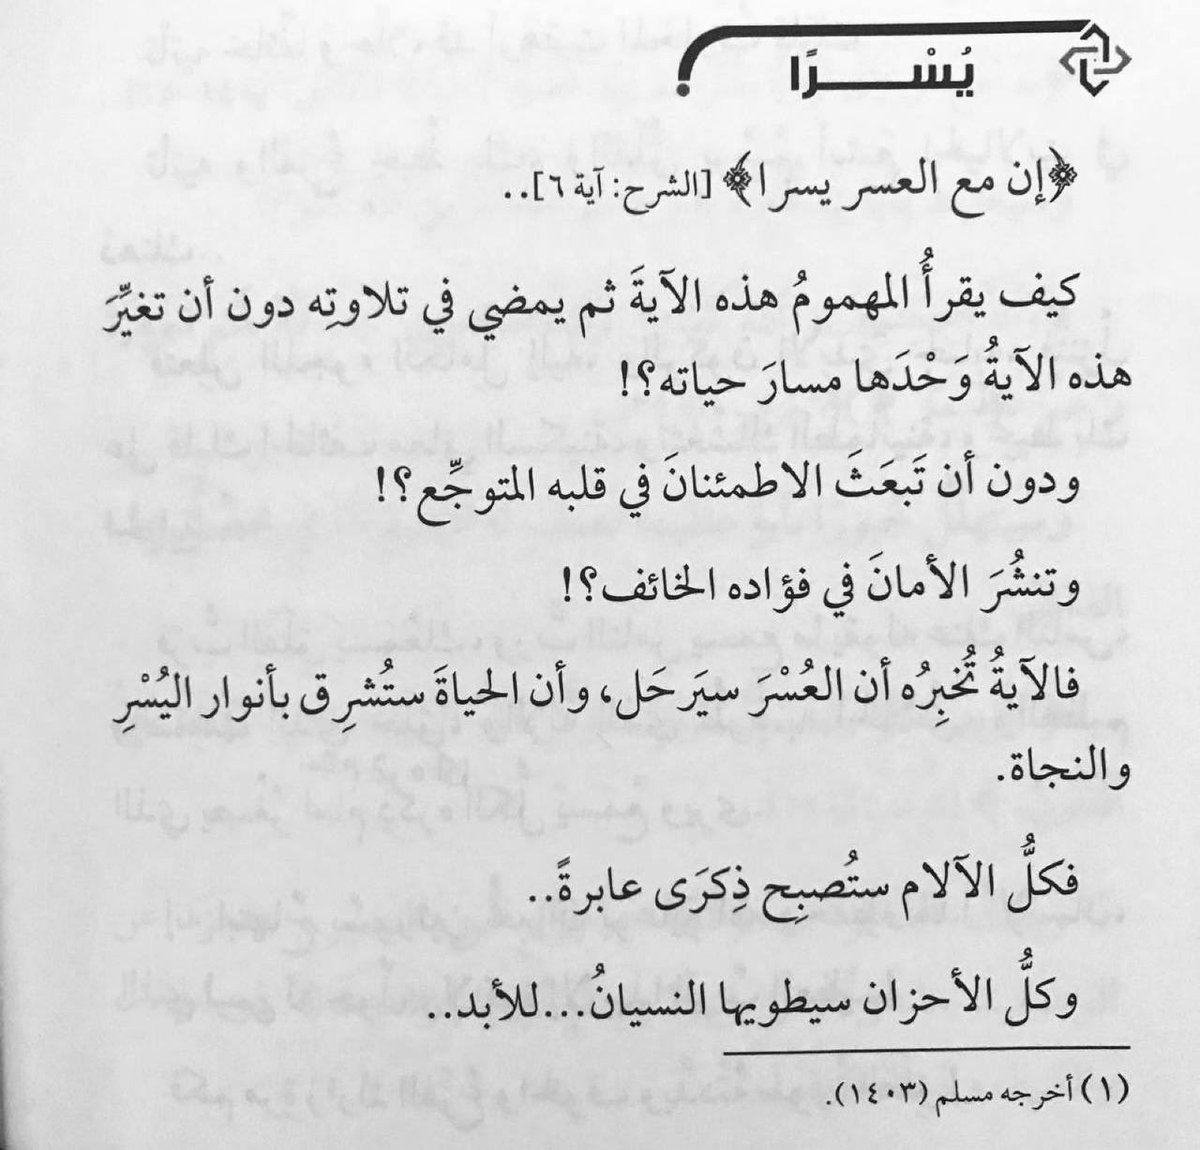 يُسْـــرًا
﴿إن مع العسر يسرا﴾ [الشرح: آية ٦]..
كيف يقرأُ المهمومُ هذه الآيةَ ثم يمضي في تلاوتِه دون أن تغيِّرَ
هذه الآيةُ وَحْدَها مسارَ حياته؟!
ودون أن تَبعَثَ الاطمئنانَ في قلبه المتوجِّع؟!
وتنشُرَ الأمانَ في فؤاده الخائف؟!
فالآيةُ تُخبِرُه أن العُسْرَ سيَرحَل، وأن الحياةَ ستُشرِق بأنوار اليُسْرِ
والنجاة.
فكلُّ الآلام ستُصبِح ذِكرَى عابرةً..
وكلُّ الأحزان سيطويها النسيانُ...للأبد..
(١) أخرجه مسلم (١٤٠٣).